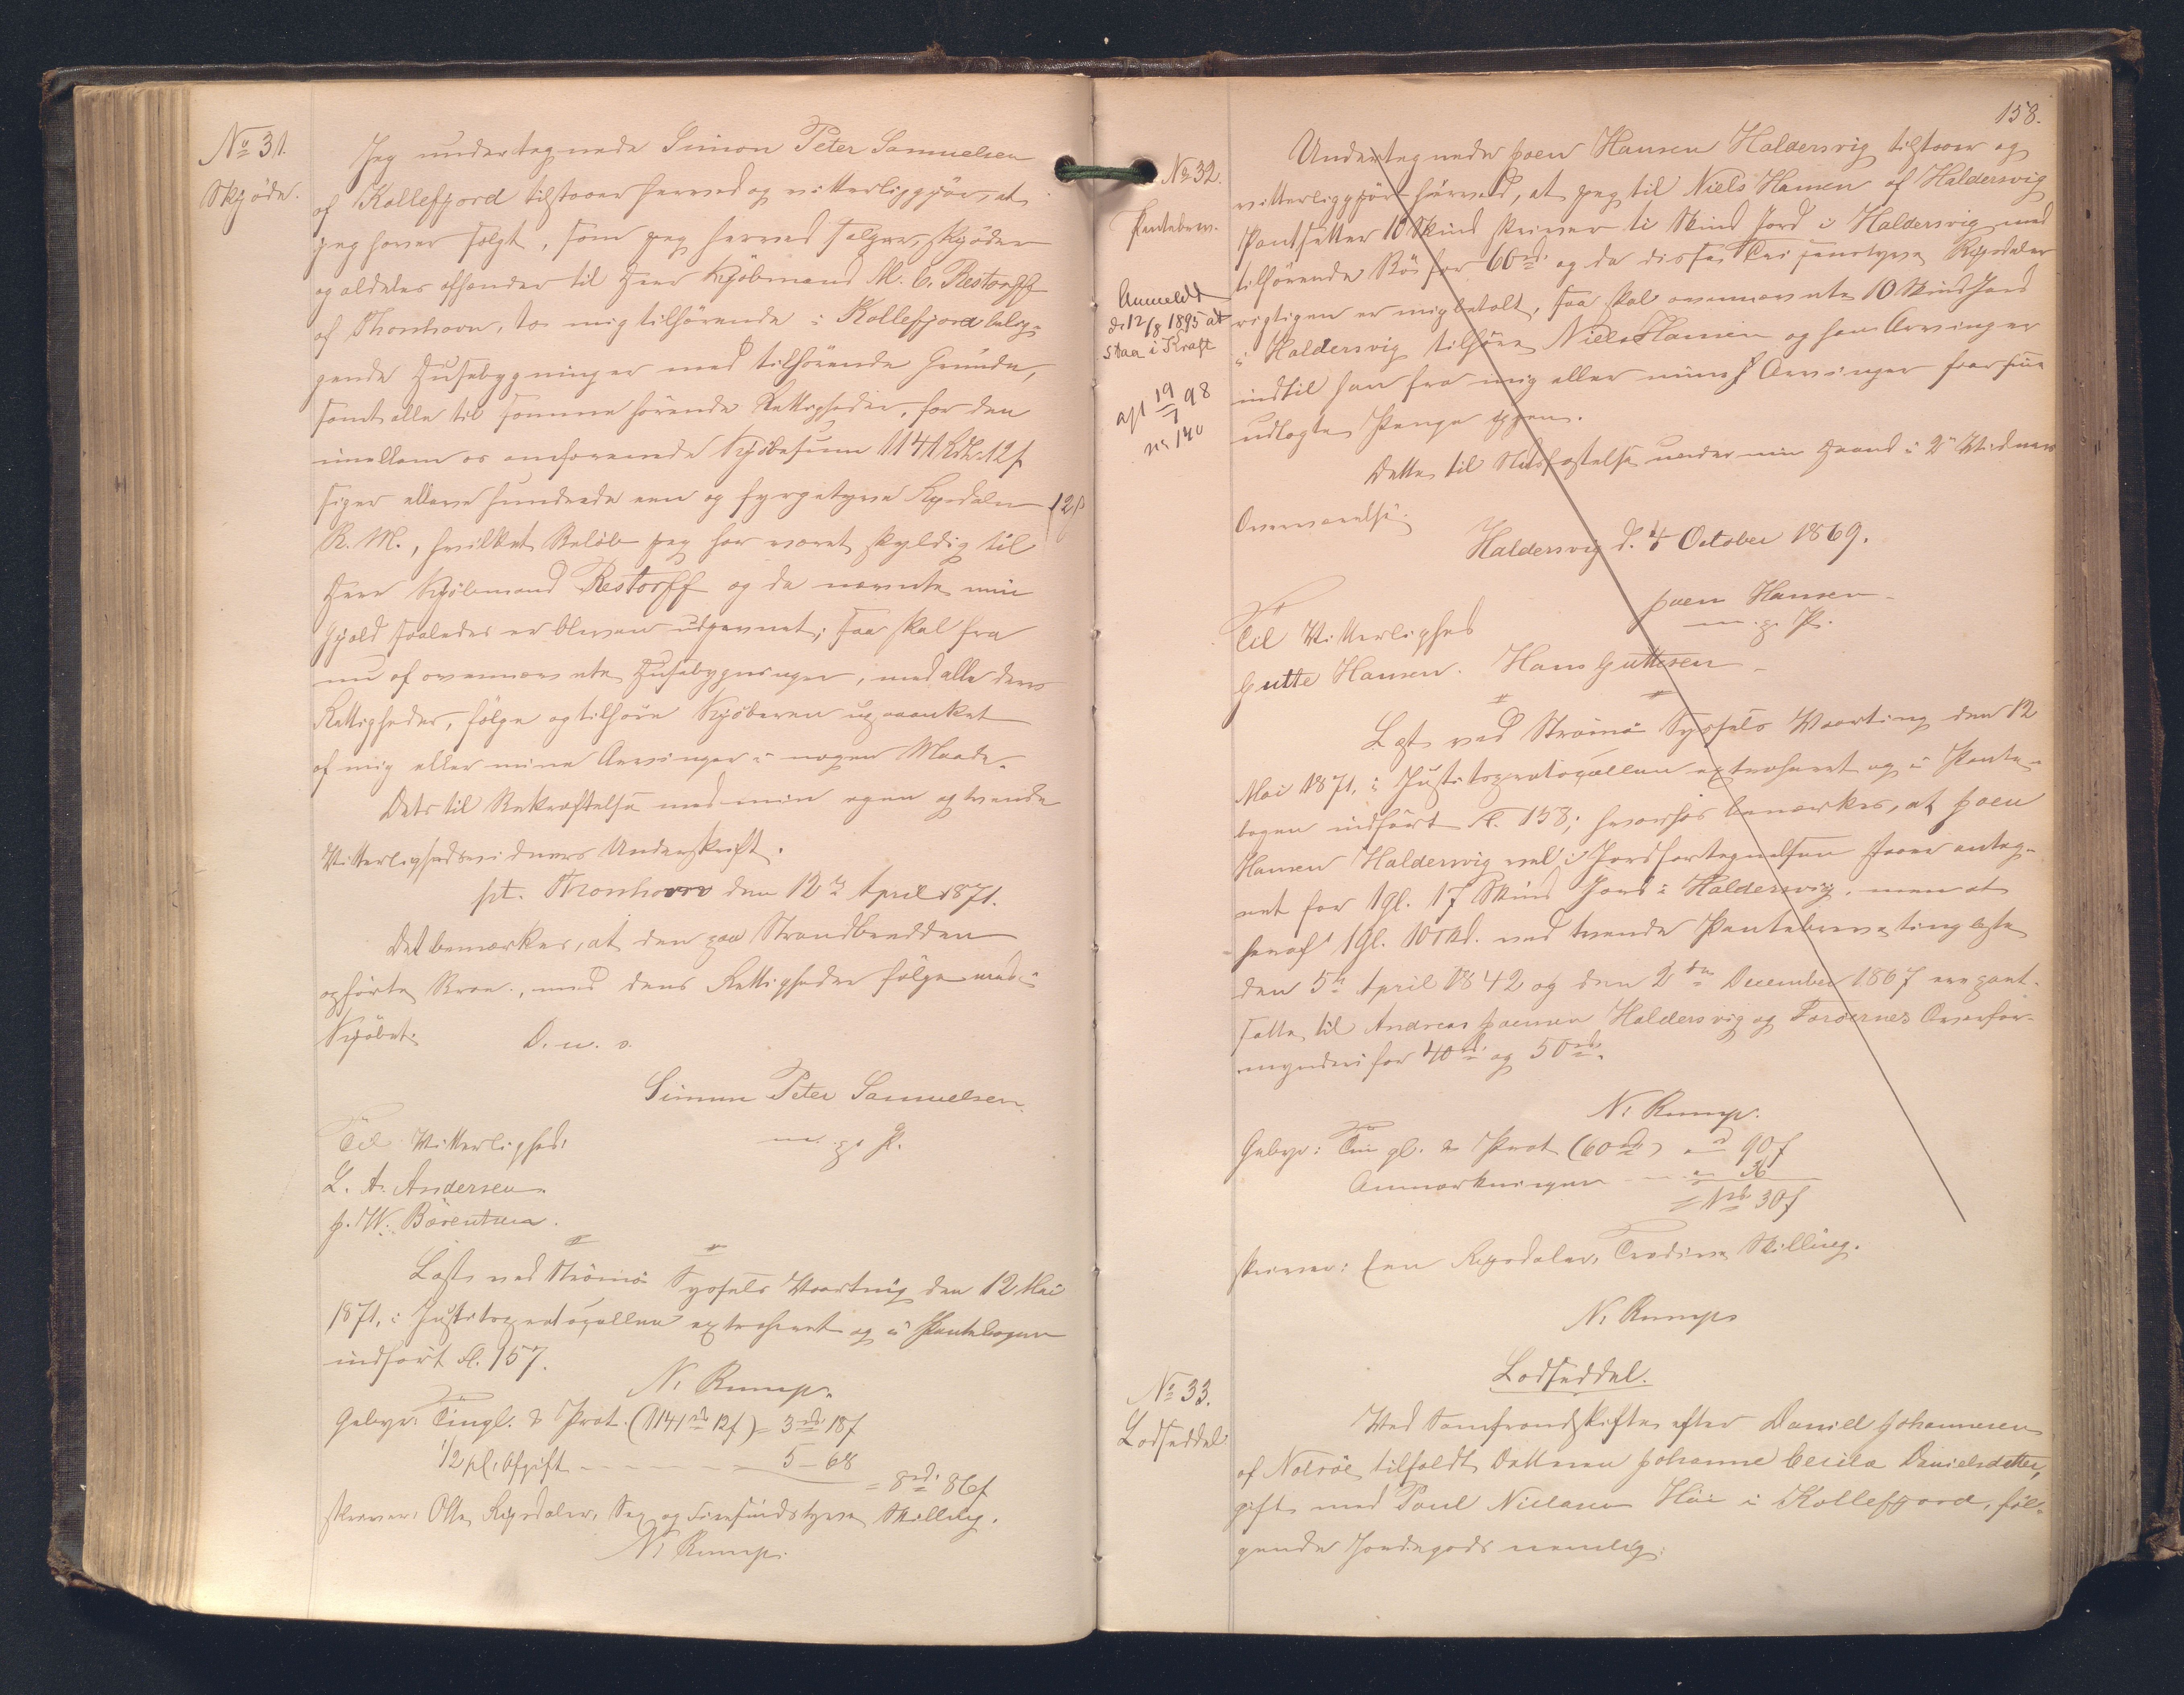 No 31.
Skjøde.
Jeg undertegnede Simon Peter Samuelsen
af Kollefjord tilstaaer herved og vitterliggjør, at
jeg haver solgt, som jeg herved sælger, skjøder
og aldeles afhænder til Herr Kjøbmand M. C. Restorff
af Thorshavn, de mig tilhørende i Kollefjord belig-
gende Huusebygninger med tilhørende Grunde,
samt alle til samme hørende Rettigheder, for den
imellem os omforenede Kjøbesum 1141 Rdlr. 12 s
siger elleve hundrede een og fyrgetyve Rigsdaler 12 s
R. M., hvilket Beløb jeg har været skyldig til
Herr Kjøbmand Restorff og da nævnte min
Gjæld saaledes er bleven udjevnet, saa skal fra
nu af ovennævnte Huusebygninger, med alle dens
Rettigheder, følge og tilhøre Kjøberen upaaanket
af mig eller mine Arvinger i nogen Maade.
Dets til Bekræftelse med min egen og tvende
Vitterlighedsvidners Underskrift.
pt. Thorshavn den 12te April 1871.
Det bemærkes, at den paa Strandbredden
opførte Kroe, med dens Rettigheder følge med i
Kjøbet.
D. u. s.
Simon Peter Samuelsen
m. p. P.
Til Vitterlighed:
L. A. Andersen.
J. W. Bærentsen.
Læst ved Strømø Syssels Vaarting den 12 Mai
1871, i Justitsprotocollen extraheret og i Pantebogen
indført Fl. 157.
N. Rump.
Gebyr: Tingl. & Prot. (1141 rd 12 s) = 3 rd 18 s
1/2 pCt. Afgift - - - - - 5 - 68
= 8 rd. 86 s
skriver: Otte Rigsdaler, Sex og Firesindstyve Skilling.
N. Rump.
158.
No 32.
Pantebrev.
Anmeldt
d. 12/8 1895 at
staa i Kraft
afl 19/7 98
nr 140
Undertegnede Joen Hansen Haldersvig tilstaaer og
vitterliggjør herved, at jeg til Niels Hansen af Haldersvig
Pantsætter 10 Skind skriver ti Skind Jord i Haldersvig med
tilhørende for 60 rd. og da disse Tresindstyve Rigsdaler
rigtigen er mig betalt, saa skal ovennævnte 10 Skind Jord
i Haldersvig tilhøre Niels Hansen og hans Arvinger
indtil han fra mig eller mine Arvinger faar sine
udlagte Penge igjen.
Dette til Stadfæstelse under min Haand i 2de Vidners
Overværelse.
Haldersvig d. 4 October 1869.
Joen Hansen
m. p. P.
Til Vitterlighed
Gutte Hansen. Hans Guttesen
Læst ved Strømø Syssels Vaarting den 12
Mai 1871, i Justitsprotocollen extraheret og i Pante-
bogen indført Fl. 158; hvorhos bemærkes, at Joen
Hansen Haldersvig vel i Jordfortegnelsen staaer anteg-
net for 1 Gl. 17 Skind Jord i Haldersvig, men at
heraf 1 Gl. 10 Skd. ved tvende Pantebreve tinglæste
den 5te April 1842 og den 2den December 1867 ere pant-
satte til Andreas Joensen Haldersvig og Færøernes Overfor-
mynderi for 40 rd. og 50 rd.
N. Rump.
Gebyr: Tingl. & Prot (60 rd) 90 s
Anmærkningen - - 36
= 1 rd. 30 s
skriver: Een Rigsdaler, Tredive Skilling.
N. Rump
No 33.
Lodseddel
Lodseddel.
Ved Samfrændskifte efter Daniel Johannesen
af Nolsøe tilfaldt Datteren Johanne Cecilia Danielsdatter,
gift med Poul Niclasen Høi i Kollefjord, føl-
gende Jordegods nemlig: